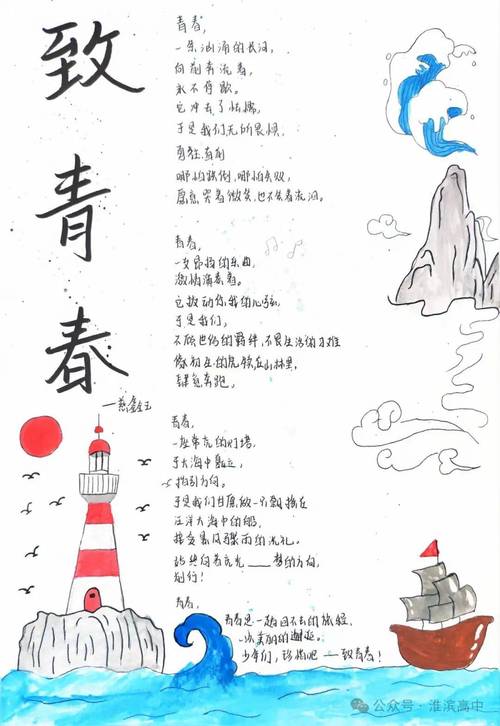 致青春
青春，
一条汹涌的长河，
向前奔流着，
永不停歇。
它冲去了怯懦，
于是我们无所畏惧，
勇往直前
哪怕跌倒，哪怕失败，
愿意哭着微笑，也不笑着流泪。
青春，
一支昂扬的乐曲，
激情满卷着。
它拨动你我的心弦，
于是我们，
不顾世俗的羁绊，不畏生活的刁难
像初生的虎馁在山林里，
肆意奔跑，
青春，
一座常亮的灯塔，
于大海中矗立，
指引方向。
于是我们甘愿做一只翱
汪洋大海中的船，
接受暴风骤雨的洗礼。
始终向着亮光——梦的方向，
划行！
青春，
青春是一趟回不去的旅程
一次美丽的邂逅。
少年们，珍惜吧——致青春！
公众号·淮滨高中